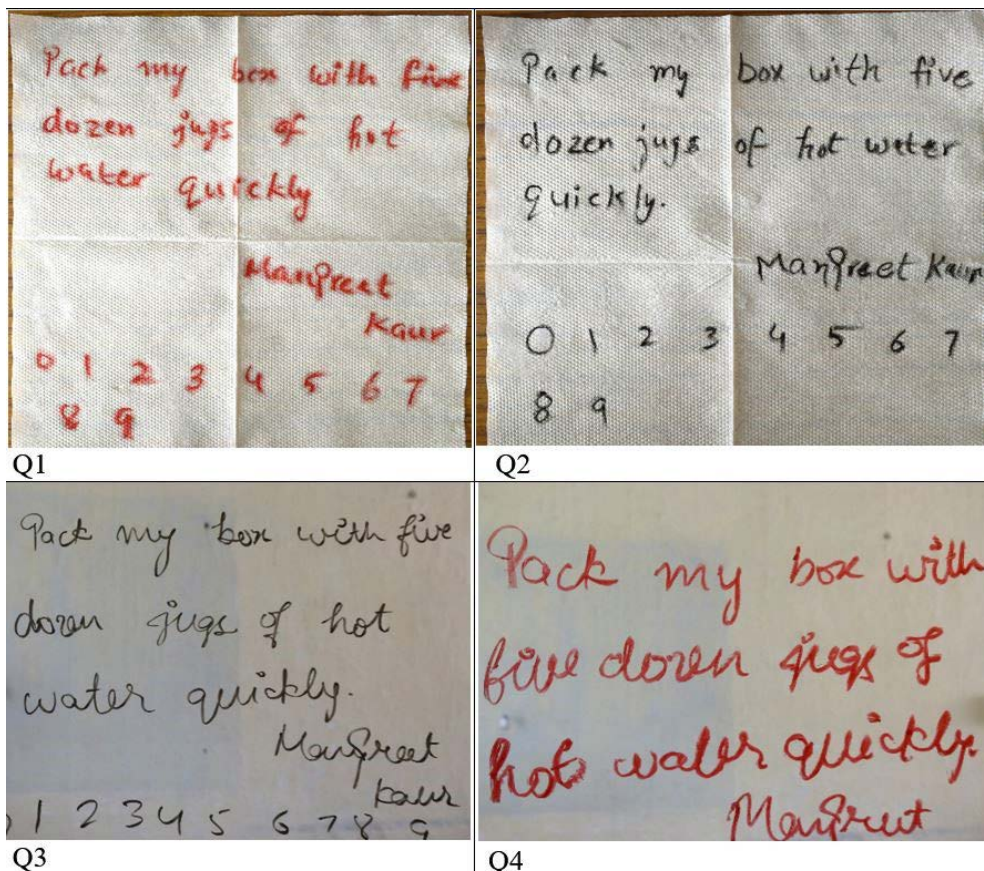 Pack my box with five
dozen jugs of hot
water quickly
Manpreet
Kaur
0 1 2 3 4 5 6 7
8 9
Q1
Pack my box with five
dozen jugs of hot water
quickly.
Manpreet Kaur
0 1 2 3 4 5 6 7
8 9
Q2
Pack my box with five
dozen jugs of hot
water quickly.
Manpreet
Kaur
1 2 3 4 5 6 7 8 9
Q3
Pack my box with
five dozen jugs of
hot water quickly.
Manpreet
Q4